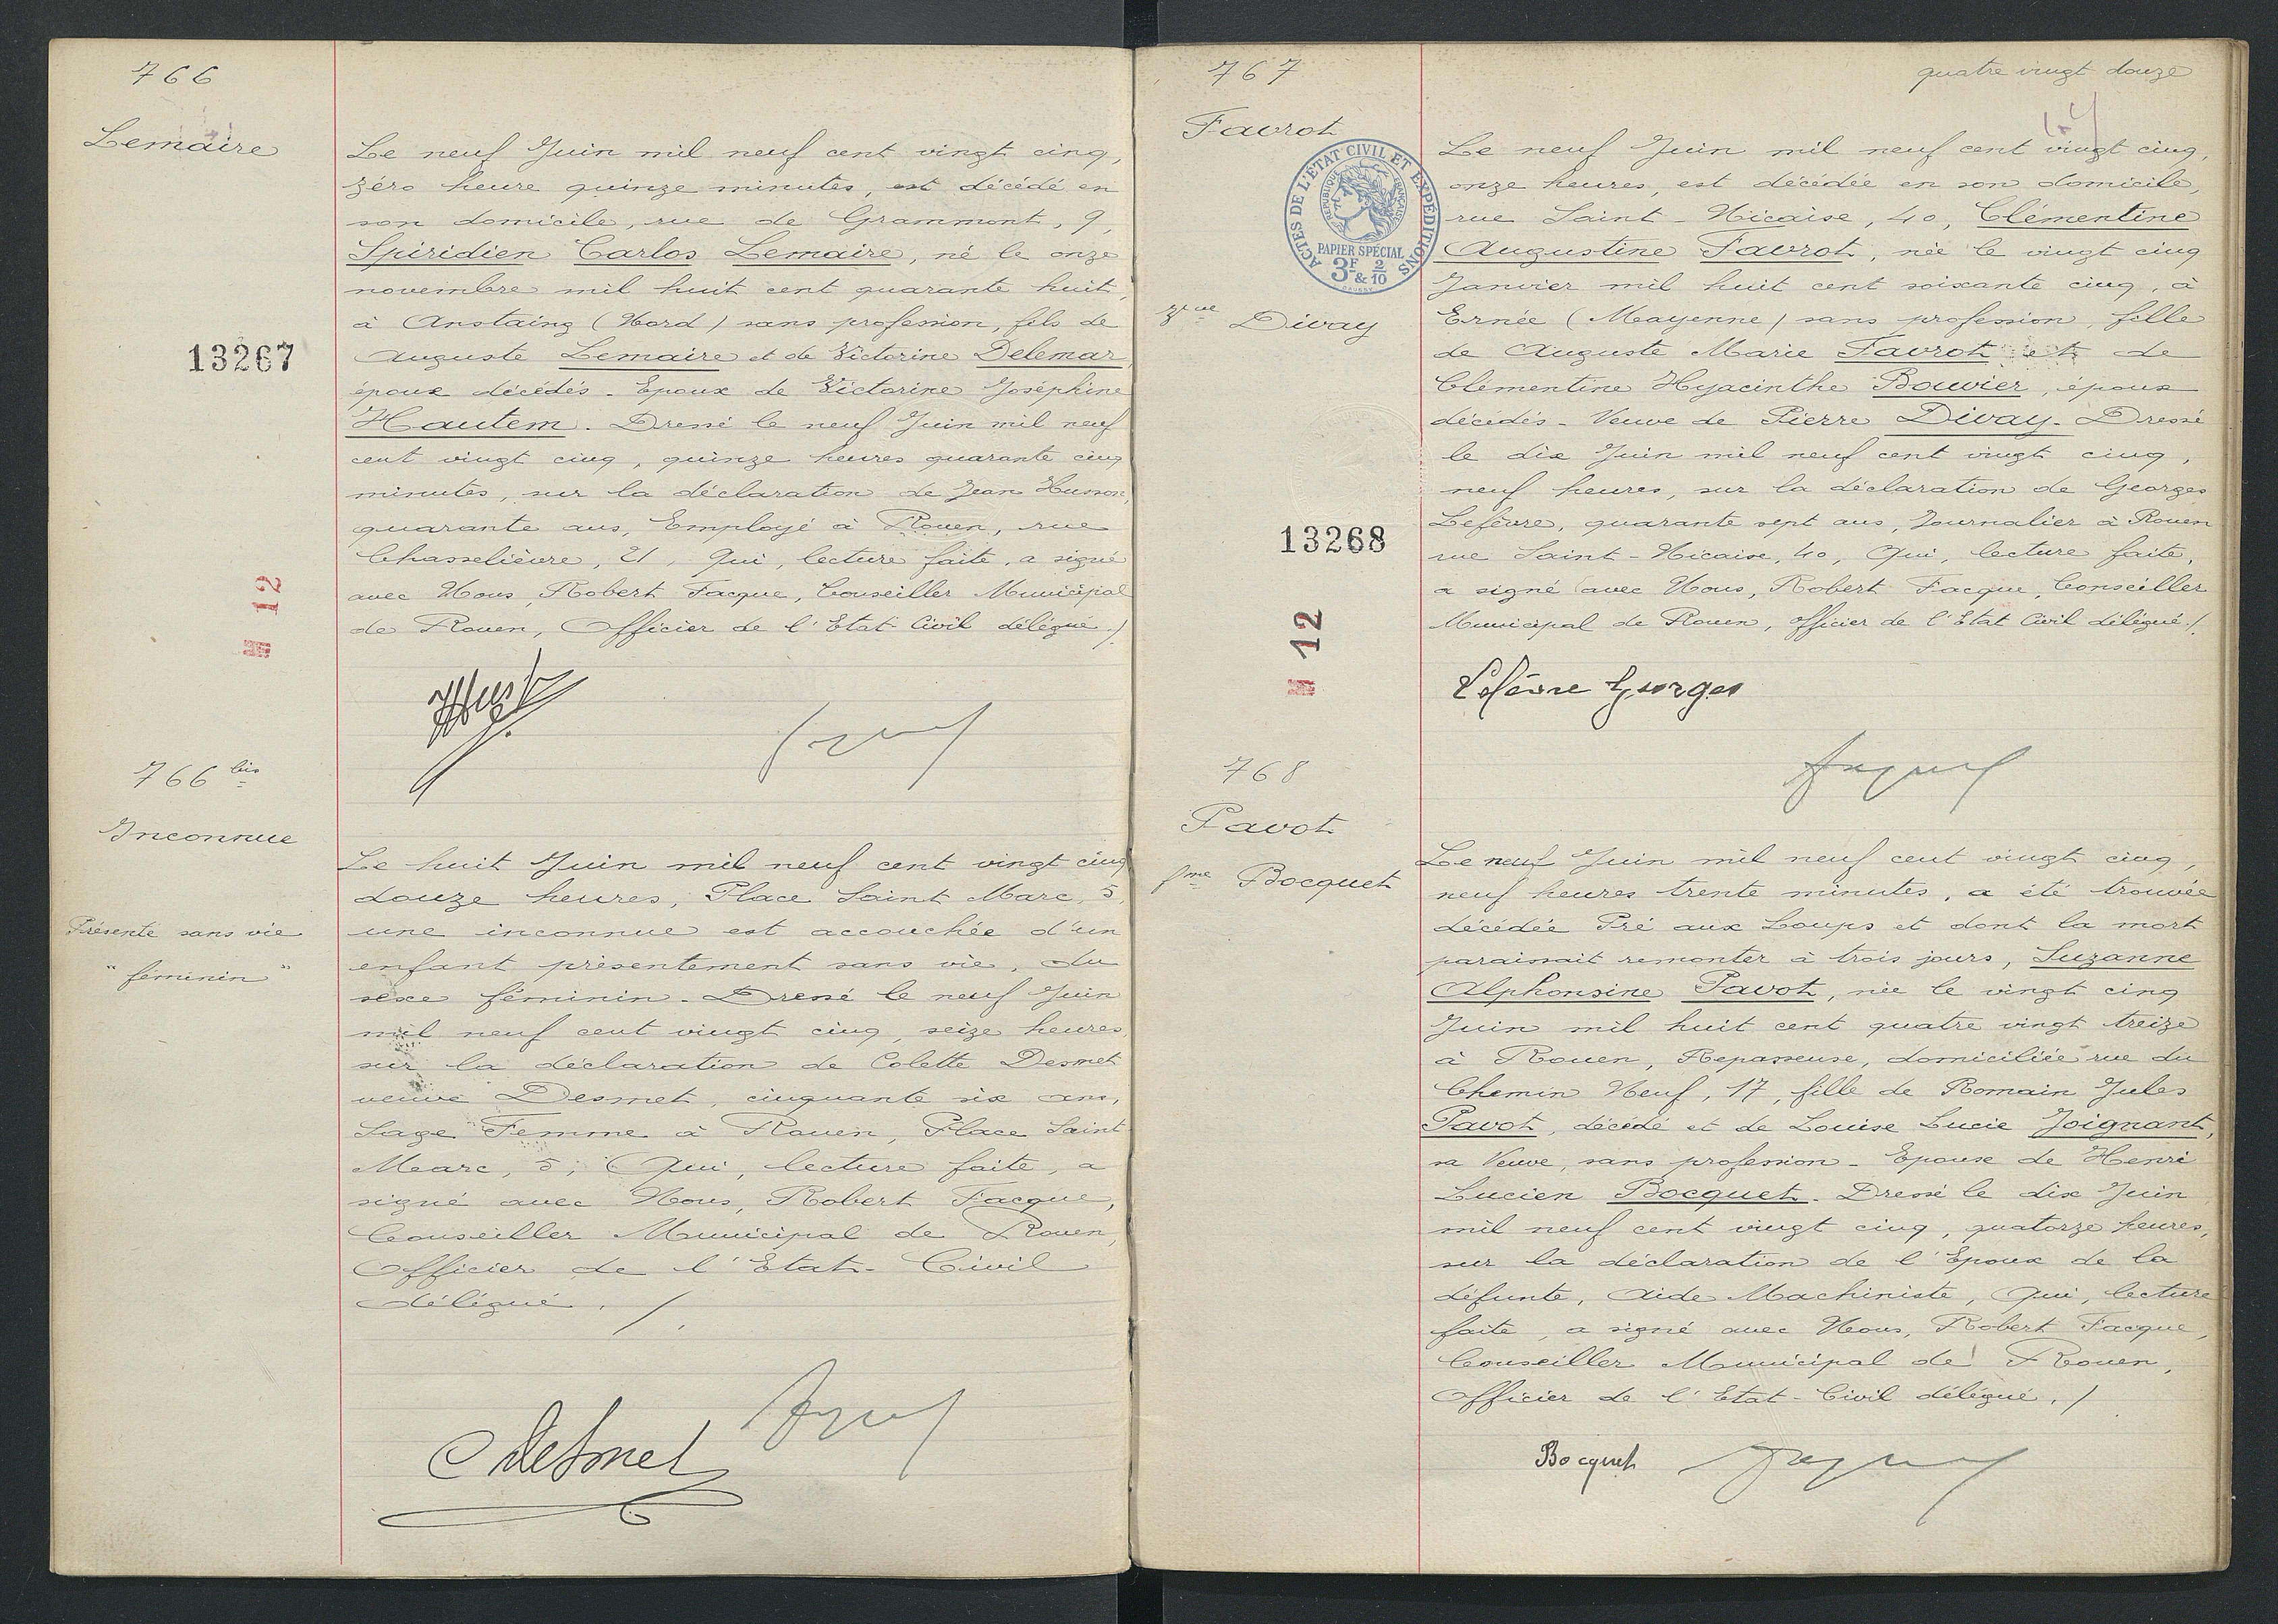 766
Lemaire
Le neuf Juin mil neuf cent vingt cinq,
zéro heure quinze minutes, est décédé en
son domicile, rue de Grammont, 9,
Spiridien Carlos Lemaire, né le onze
novembre mil huit cent quarante huit,
à Anstaing (Nord) sans profession, fils de
Auguste Lemaire et de Victorine Delemar,
époux décédés. Epoux de Victorine Joséphine
Hautem. Dressé le neuf Juin mil neuf
cent vingt cinq, quinze heures quarante cinq
minutes, sur la déclaration de Jean Husson,
quarante ans, Employé à Rouen, rue
Chasselièvre, 21, Qui, lecture faite, a signé
avec Nous, Robert Facque, Conseiller Municipal
de Rouen, Officier de l'Etat Civil délégué ./.
13267
12
766 bis
Inconnue
Présenté sans vie
"féminin"
Le huit Juin mil neuf cent vingt cinq
douze heures, Place Saint Marc, 5,
une inconnue est accouchée d'un
enfant présentement sans vie, du
sexe féminin. Dressé le neuf Juin
mil neuf cent vingt cinq, seize heures,
sur la déclaration de Colette Desmet
veuve Desmet, cinquante six ans,
Sage Femme à Rouen, Place Saint
Marc, 5, Qui, lecture faite, a
signé avec Nous, Robert Facque,
Conseiller Municipal de Rouen,
Officier de l'Etat-Civil
délégué. /.
C Desmet
767
quatre vingt douze
Favrot
Vve Divay
ACTES DE L'ÉTAT CIVIL ET EXPÉDITIONS
RÉPUBLIQUE FRANÇAISE
PAPIER SPÉCIAL
3F & 2/10
Le neuf Juin mil neuf cent vingt cinq,
onze heures, est décédée en son domicile,
rue Saint-Nicaise, 40, Clémentine
Augustine Favrot, née le vingt cinq
Janvier mil huit cent soixante cinq, à
Ernée (Mayenne) sans profession, fille
de Auguste Marie Favrot et de
Clémentine Hyacinthe Bouvier, époux
décédés. Veuve de Pierre Divay. Dressé
le dix Juin mil neuf cent vingt cinq,
neuf heures, sur la déclaration de Georges
Lefèvre, quarante sept ans, Journalier à Rouen
rue Saint-Nicaise, 40, Qui, lecture faite,
a signé avec Nous, Robert Facque, Conseiller
Municipal de Rouen, officier de l'Etat Civil délégué ./.
13268
12
Lefèvre Georges
768
Pavot
fme Bocquet
Le neuf Juin mil neuf cent vingt cinq,
neuf heures trente minutes, a été trouvée
décédée Pré aux Loups et dont la mort
paraissait remonter à trois jours, Suzanne
Alphonsine Pavot, née le vingt cinq
Juin mil huit cent quatre vingt treize
à Rouen, Repasseuse, domiciliée rue du
Chemin Neuf, 17, fille de Romain Jules
Pavot, décédé et de Louise Lucie Joignant,
sa Veuve, sans profession. Epouse de Henri
Lucien Bocquet. Dressé le dix Juin
mil neuf cent vingt cinq, quatorze heures,
sur la déclaration de l'Epoux de la
défunte, Aide Machiniste, Qui, lecture
faite, a signé avec Nous, Robert Facque,
Conseiller Municipal de Rouen,
Officier de l'Etat-Civil délégué. /
Bocquet